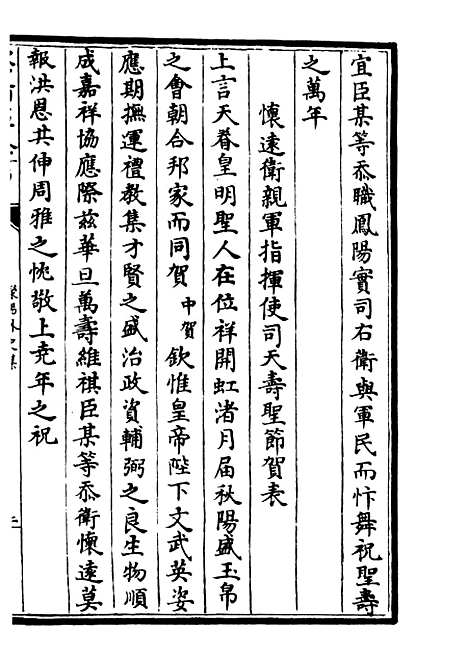 宜臣某等忝職鳳陽實司右衛與軍民而忭舞祝聖壽
之萬年
懷遠衛親軍指揮使司天壽聖節賀表
上言天眷皇明聖人在位祥開虹渚月届秋陽盛玉帛
之會朝合邦家而同賀中賀欽惟皇帝陛下文武英姿
應期撫運禮教集才賢之盛治政資輔弼之良生物順
成嘉祥協應際兹華旦萬壽維祺臣某等忝衛懷遠莫
報洪恩其伸周雅之忱敬上堯年之祝